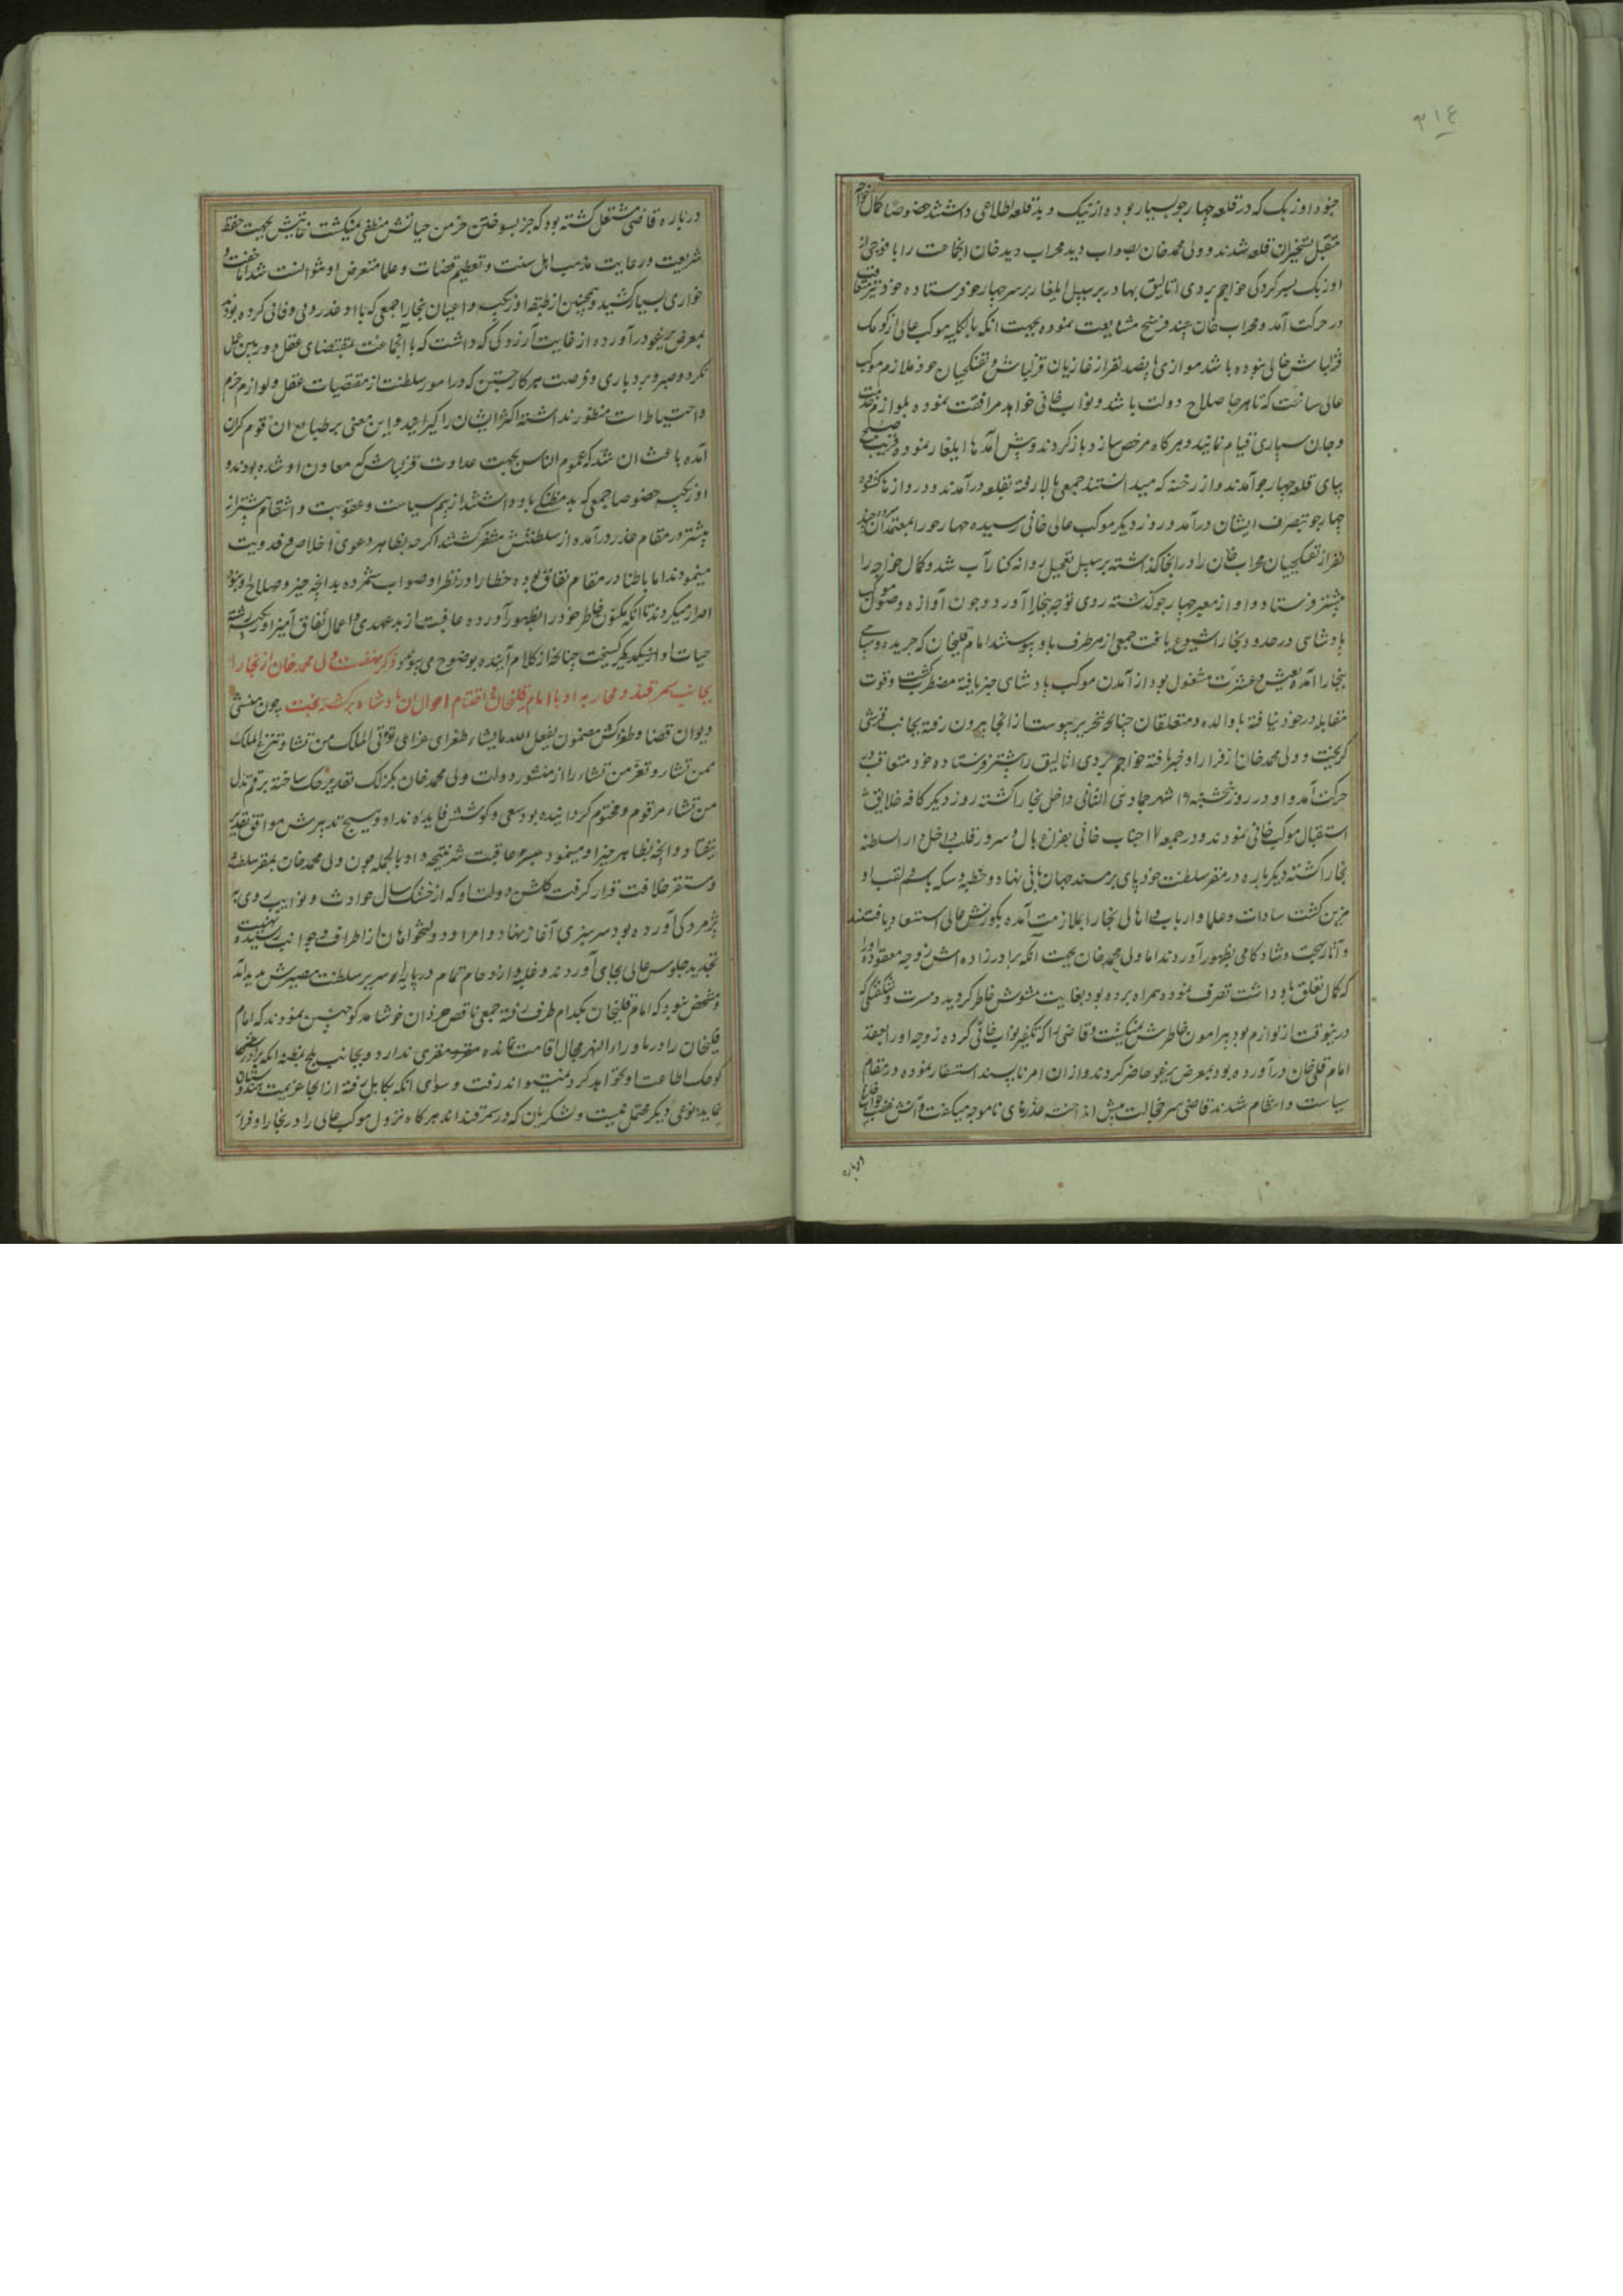 ۳۱۴
جنود اوزبک که در قلعه چهارجو بسیار بوده از نیک و بد قلعه اطلاعی داشتند خصوصا کمال خواجه
متقبل تسخیر ان قلعه شدند و ولی محمد خان بصواب دید محراب دید خان انجماعت را با فوجی از
اوزبک بسرکردگی خواجم بردی اتالیق بهادر بر سبیل ایلغار بر سر چهارجو فرستاده خود نیز متعاقب
در حرکت آمد و محراب خان چند فرسخ مشایعت نموده بجهت انکه بالکلیه موکب عالی از کومک
قزلباش خالی نبوده باشد موازی پانصد نفر از غازیان قزلباش و تفنگچیان خود ملازم موکب
عالی ساخت که تا هر جا صلاح دولت باشد و نواب خانی خواهد مرافقت نموده بلوازم خدمت
و جان سپاری قیام نمایند و هرکاه مرخص سازد بازکردند و پیش آمدها ایلغار نموده قریب صبح
بپای قلعه چهارجو آمدند و از رخنه که میدانستند جمعی بالا رفته بقلعه درآمدند و دروازها کشوده
چهارجو بتصرف ایشان درآمد و روز دیگر موکب عالی خانی رسیده چهارجو را بمعتمدان سپرده چند
نفر از تفنگچیان محراب خان را در انجا گذاشته بر سبیل تعجیل روانه کنار آب شد و کمال خواجه را
پیشتر فرستاد و او از معبر چهارجو گذشته روی توجه ببخارا آورد و چون آوازه وصول موکب
پادشاهی در حدود بخارا شیوع یافت جمعی از هر طرف باو پیوستند امام قلیخان که جریده و سپاهی
ببخارا آمده بعیش و عشرت مشغول بود از آمدن موکب پادشاهی خبر یافته مضطرب گشت و قوت
مقابله در خود نیافته با والده و متعلقان چنانچه بتحریر پیوست از انجا بیرون رفته بجانب قرشی
گریخت و ولی محمد خان از فرار او خبر یافته خواجم بردی اتالیق را پیشتر فرستاده خود متعاقب در
حرکت آمد و او در روز پنجشنبه ۱۶ شهر جمادی الثانی داخل بخارا گشته روز دیگر کافه خلایق
استقبال موکب خانی نمودند و در جمعه ۱۷ جناب خانی بفراغ بال و سرور قلب داخل دار السلطنه
بخارا گشته دیگر باره در مقر سلطنت خود پای بر مسند جهانبانی نهاد و خطبه و سکه باسم و لقب او
مزین گشت سادات و علما و ارباب و اهالی بخارا بملازمت آمده بکورنش عالی استسعاد یافتند
و آثار بهجت و شادکامی بظهور آوردند اما ولی محمد خان بجهت آنکه برادرزاده اش زوجه معقوده او را
که کمال تعلق باو داشت تصرف نموده همراه برده بود بغایت مشوش خاطر گردید و مسرت و شکفتگی که
درینوقت از لوازم بود پیرامون خاطرش نمیگشت و قاضی را که تکفیر نواب خانی کرده زوجه او را بعقد
امام قلی خان درآورده بود بمعرض یرغو حاضر کردند و از ان امر ناپسند استفسار نموده در مقام
سیاست و انتقام شدند قاضی سر خجالت پیش انداخته عذرهای ناموجه میگفت و آتش غضب نواب خانی
درباره
درباره قاضی مشتعل گشته بود که جز بسوختن خرمن حیاتش منطفی نمیگشت خانیش بجهت حفظ
شریعت و رعایت مذهب اهل سنت و تعظیم قضات و علما متعرض او نتوانست شد اما خفت و
خواری بسیار کشید و همچنین از طبقه اوزبکیه و اعیان بخارا جمعی که با او غدر و بی وفائی کرده بودند
بمعرض یرغو درآورده از غایت آرزوگی که داشت که با آنجماعت بمقتضای عقل دوربین عمل
نکرد و صبر و بردباری و فرصت هر کار جستن که در امور سلطنت از مقتضیات عقل و لوازم حزم
و احتیاط است منظور نداشته اکثر ایشان را گیرانید و این معنی بر طبایع ان قوم گران
آمده باعث ان شد که عموم الناس بجهت عداوت قزلباش که معاون او شده بودند و
اوزبکیه خصوصا جمعی که بدمظنگی باو داشتند از بیم سیاست و عقوبت و انتقام بیشتر از
پیشتر در مقام عذر درآمده از سلطنتش متنفر گشتند اگرچه بظاهر دعوی اخلاص و فدویت
مینمودند اما باطنا در مقام نفاق بوده خطا را در نظر او صواب شمرده بدانچه خیر و صلاح او نبود
اصرار میکردند تا انکه مکنون خاطر خود را بظهور آورده عاقبت از بدعهدی و اعمال نفاق آمیز اوزبکیه رشته
حیات او از یکدیگر گسیخت چنانچه از کلام آینده بوضوح می پیوندد ذکر نهضت ولی محمد خان از بخارا
بجانب سمرقند و محاربه او با امام قلیخان و اختتام احوال ان پادشاه برگشته بخت چون منشی
دیوان قضا و طغراکش مضمون یفعل الله ما یشاء طغرای غرای توتی الملک من تشاء و تنزع الملک
ممن تشاء و تعز من تشاء را از منشور دولت ولی محمد خان بگزلک تقدیر حک ساخته برقم تذل
من تشاء مرقوم و مختوم گردانیده بود سعی و کوشش فایده نداد و هیچ تدبیرش موافق تقدیر
نیفتاد و آنچه بظاهر خیر او مینمود میسر و عاقبت شر نتیجه داد بالجمله چون ولی محمد خان بمقر سلطنت
و مستقر خلافت قرار گرفت گلشن دولت او که از خشک سال حوادث و نوایب روی به
پژمردگی آورده بود سرسبزی آغاز نهاد و امرا و دولتخواهان از اطراف و جوانب رسیده تهنیت
تجدید جلوس عالی بجای آوردند و غلبه و ازدحام تمام در پایه سریر سلطنت مصیرش پدید آمد
و مشخص نبود که امام قلیخان بکدام طرف رفته جمعی ناقص خردان خوشامدگو چنین نمودند که امام
قلیخان را در ماوراء النهر مجال اقامت نمانده مقر و مفری ندارد و بجانب بلخ بمظنه انکه برادرش
کوچک اطاعت او نخواهد کرد نمیتواند رفت و سوای انکه بکابل رفته از انجا عزیمت هندوستان
نماید نوعی دیگر محتمل نیست و لشکریان که در سمرقند اند هر گاه نزول موکب عالی را در بخارا و فرار